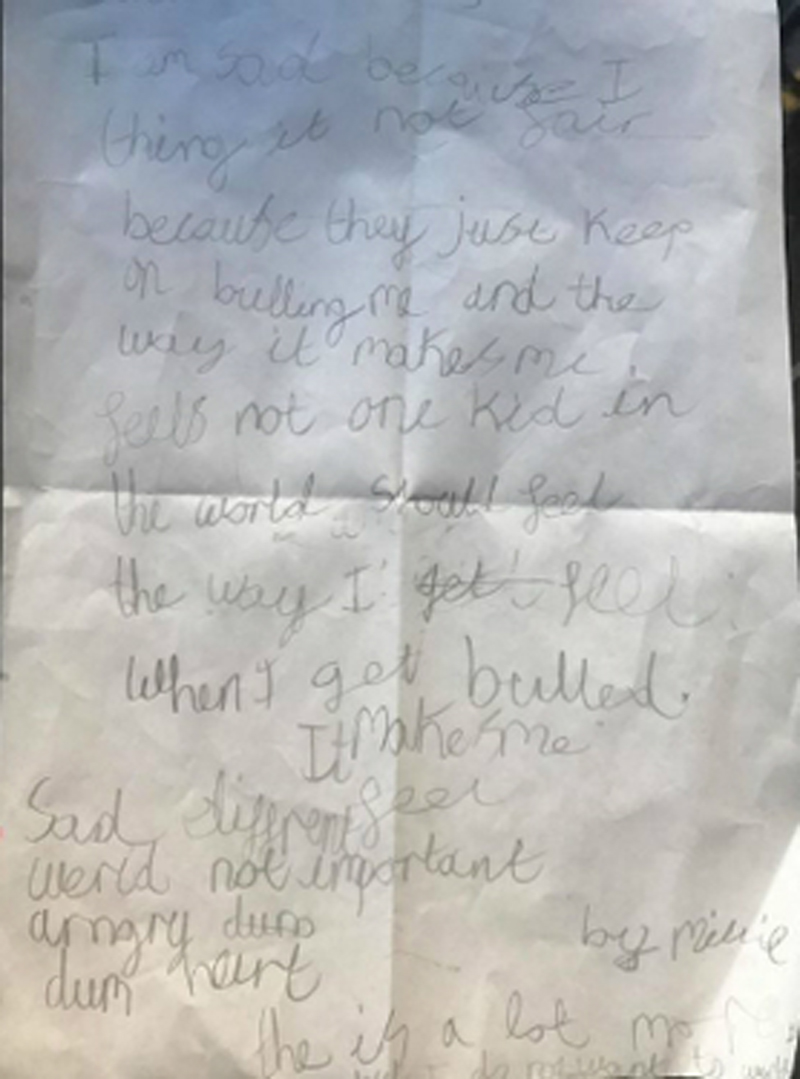 I am sad because I
thing it not fair
because they just keep
on bulling me and the
way it makes me.
feels not one kid in
the world should feel
the way I get feel.
When I get bulled.
It makes me
feel
Sad different
werid not important
arngry dum
dum heart
by Millie
the is a lot more
I do not want to